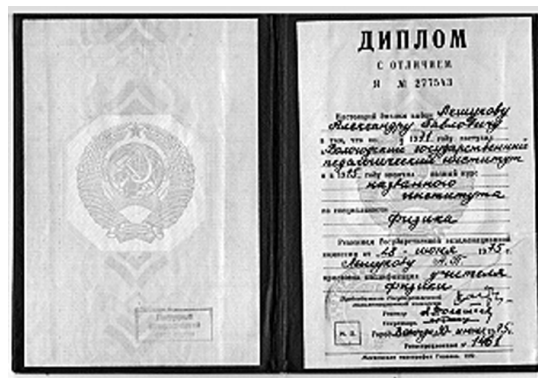 ДИПЛОМ
С ОТЛИЧИЕМ
Я № 277543
Настоящий диплом выдан Лешукову
Александру Павловичу
в том, что он в 1971 году поступил
в Вологодский государственный
педагогический институт
и в 1975 году окончил полный курс
названного
института
по специальности
физика
Решением Государственной экзаменационной
комиссии от 28 июня 1975 г.
Лешукову А.П.
присвоена квалификация учителя
физики
Председатель Государственной
экзаменационной комиссии
Ректор
Секретарь
М. П.
Город Вологда июня 1975 г.
Регистрационный № 1461
Московская типография Гознака.